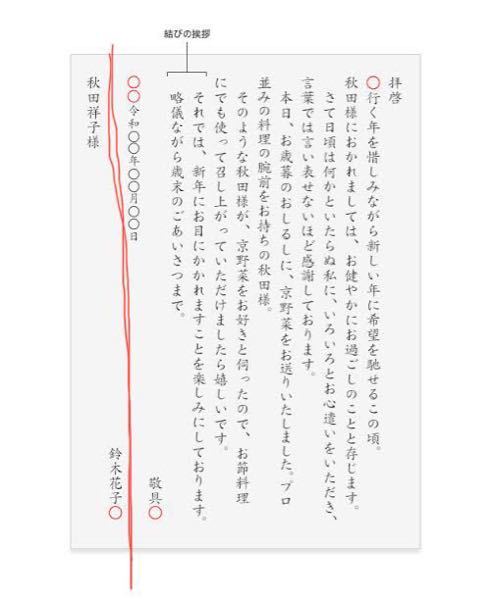 結びの挨拶
拝啓
○行く年を惜しみながら新しい年に希望を馳せるこの頃。
秋田様におかれましては、お健やかにお過ごしのことと存じます。
さて日頃は何かといたらぬ私に、いろいろとお心遣いをいただき、
言葉では言い表せないほど感謝しております。
本日、お歳暮のおしるしに、京野菜をお送りいたしました。プロ
並みの料理の腕前をお持ちの秋田様。
そのような秋田様が、京野菜をお好きと伺ったので、お節料理
にでも使って召し上がっていただけましたら嬉しいです。
それでは、新年にお目にかかれますことを楽しみにしております。
略儀ながら歳末のごあいさつまで。
敬具○
○○令和○○年○○月○○日
鈴木花子○
秋田祥子様